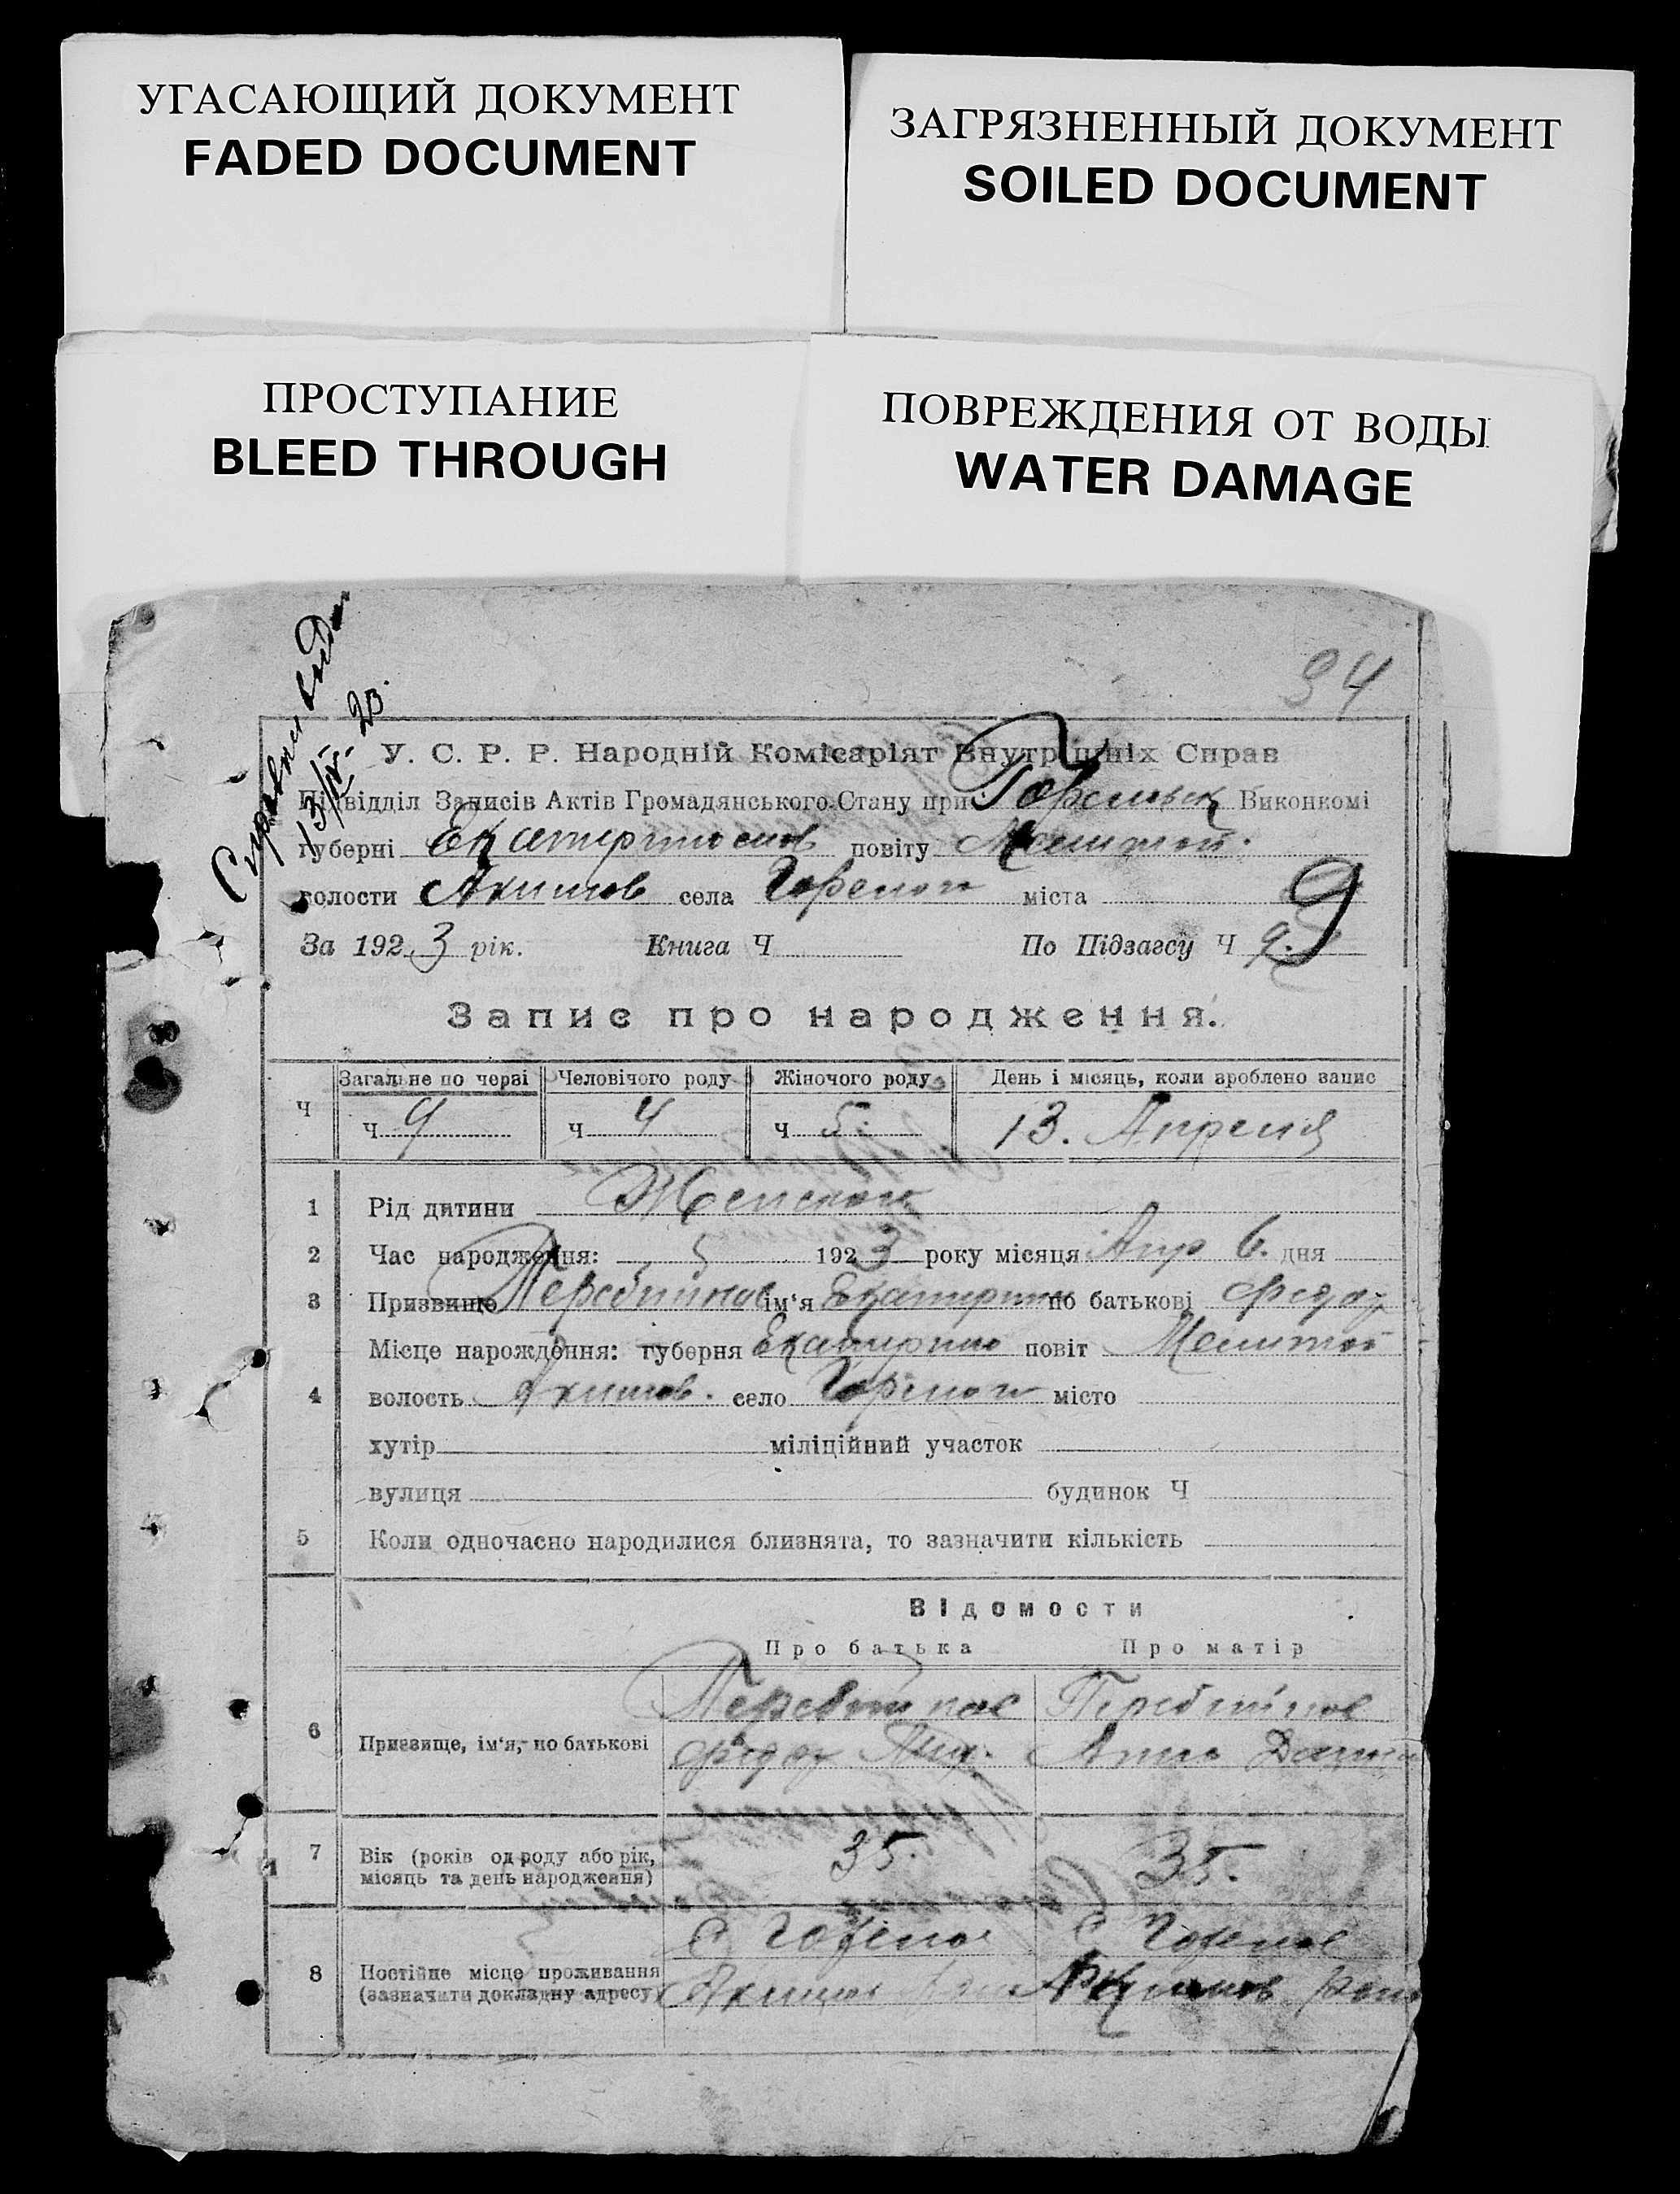 УГАСАЮЩИЙ ДОКУМЕНТ
FADED DOCUMENT
ЗАГРЯЗНЕННЫЙ ДОКУМЕНТ
SOILED DOCUMENT
ПРОСТУПАНИЕ
BLEED THROUGH
ПОВРЕЖДЕНИЯ ОТ ВОДЫ
WATER DAMAGE
94
13/IV-23.
У. С. Р. Р. Народній Комісаріят Внутрішніх Справ
Підвідділ Записів Актів Громадянського Стану при Горельск Виконкомі
губерні Екатеринослов повіту Мелитоп.
волости Акимов села Горелог міста
9
За 1923 рік. Книга Ч По Підзагсу Ч 9.
Запис про народження.
Ч Загальне по черзі Человічого роду Жіночого роду День і місяць, коли зроблено запис
Ч 9 Ч 4 Ч 5. 13. Апреля
1 Рід дитини Женскаго
2 Час народження: 1923 року місяця Апр 6. дня
3 Призвище ім‘я Екатерина по батькові Федор
Місце нарождення: губерня Екатерино повіт Мелитоп
4 волость Акимов. село Горелог місто
хутір міліційний участок
вулиця будинок Ч
5 Коли одночасно народилися близнята, то зазначити кількість
Відомости
Про батька Про матір
6 Призвище, ім‘я, по батькові
Федор Анна
7 Вік (років од роду або рік, місяць та день народження) 35. 35.
8 Постійне місце проживання (зазначити докладну адресу) с Горелог с Горелог
Акимов Акимов